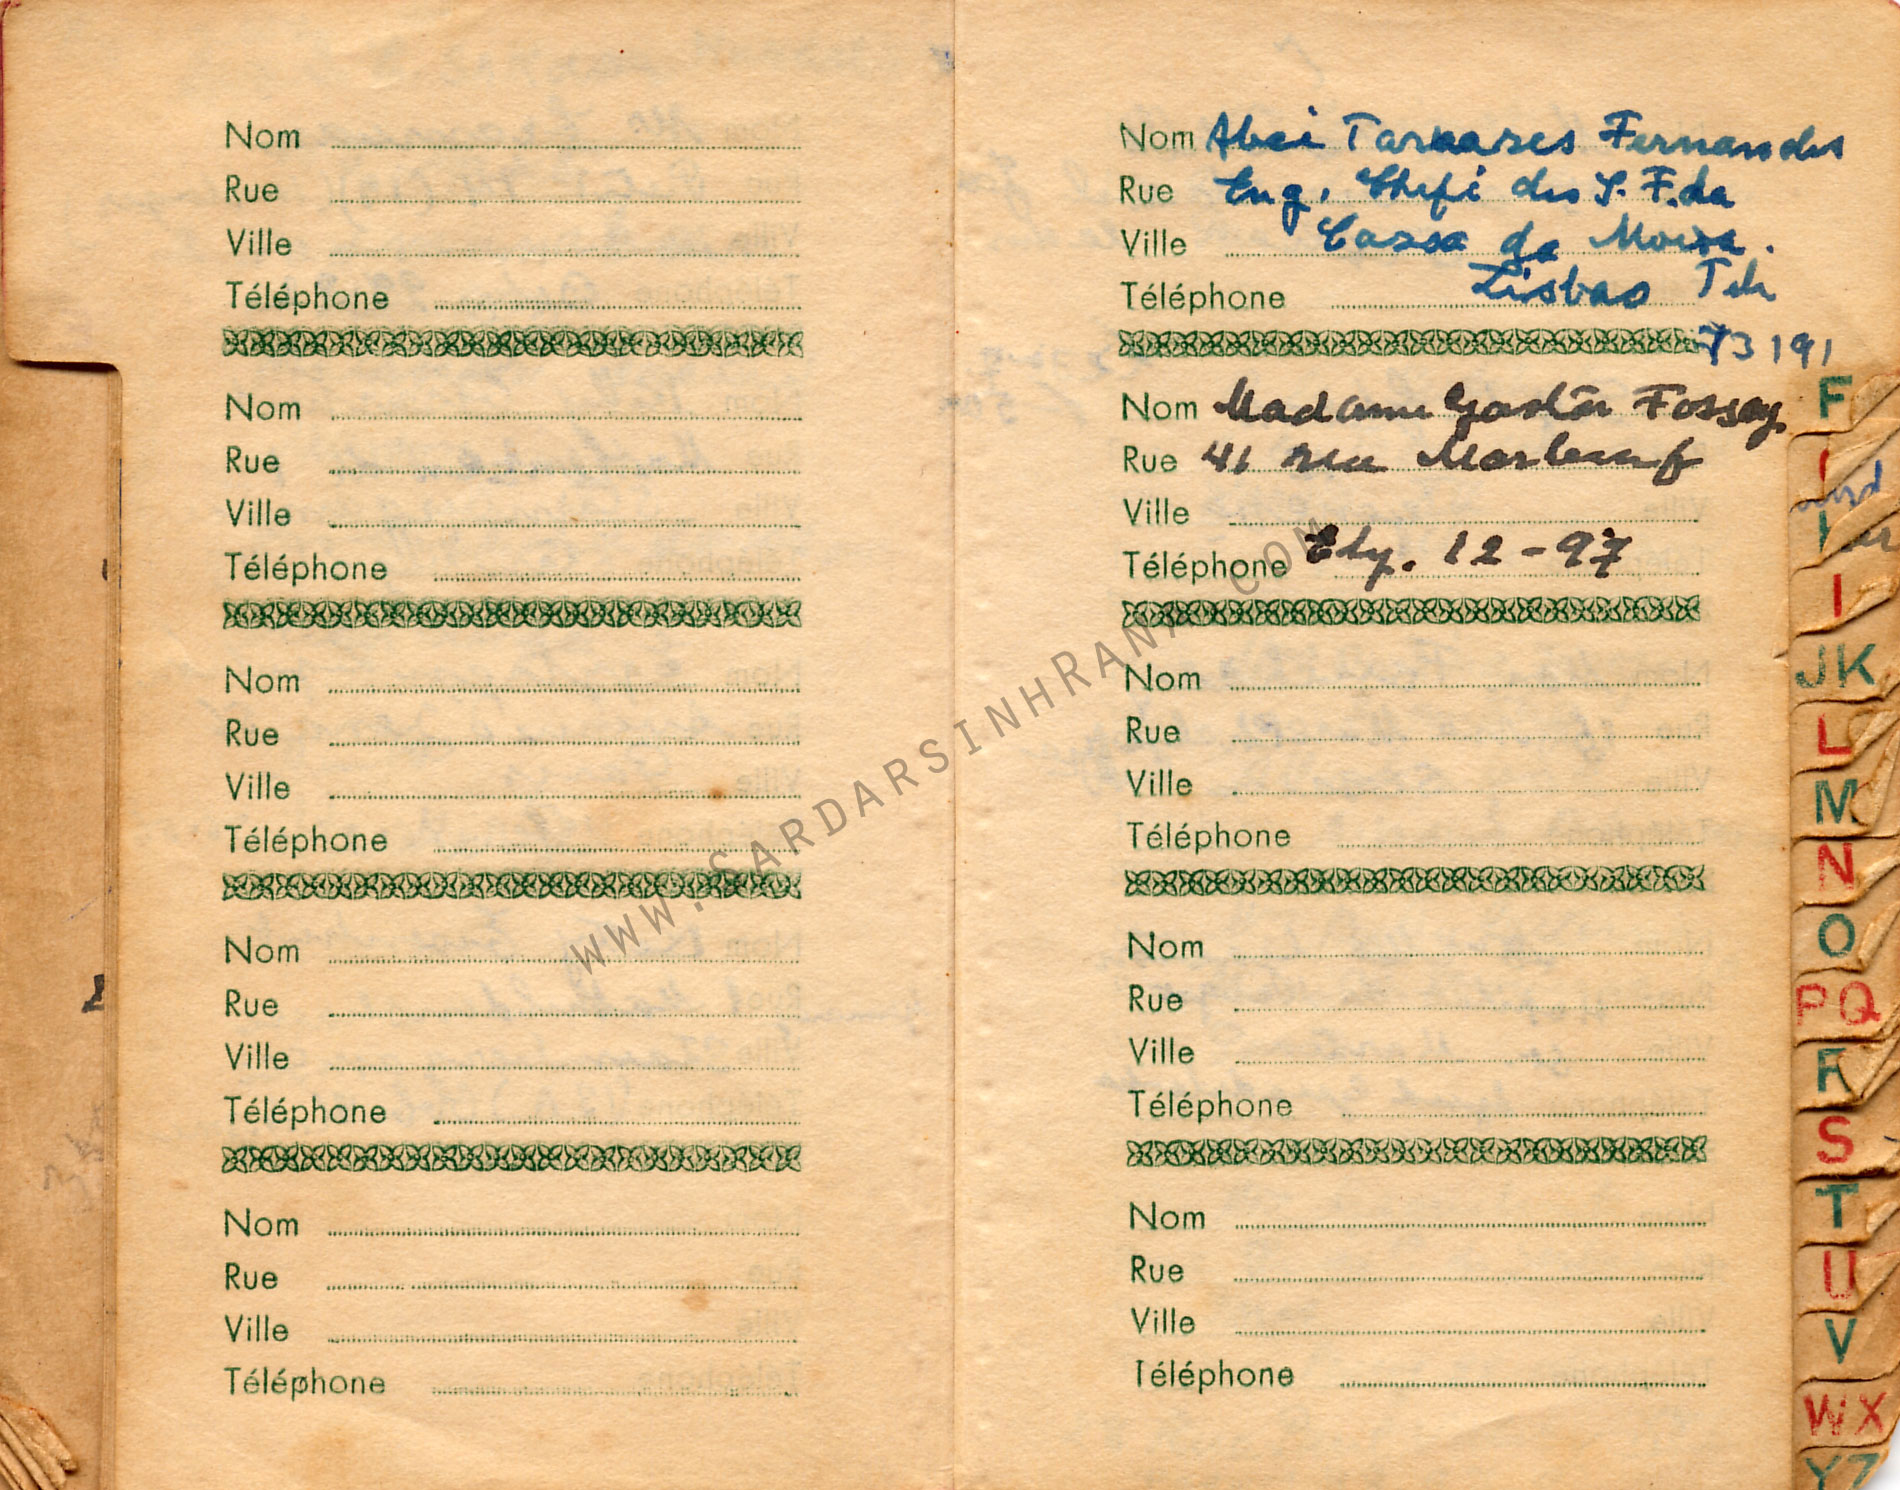 Nom
Rue
Ville
Téléphone
Nom
Rue
Ville
Téléphone
Nom
Rue
Ville
Téléphone
Nom
Rue
Ville
Téléphone
Nom
Rue
Ville
Téléphone
Nom Tavares Fernandes
Rue Eng. Chefi des S. F. da
Ville Cassa da Moeda.
Téléphone Lisboa Tel.
73191
Nom Madame Gaston Fossey
Rue 41 rue Marbeuf
Ville
Téléphone Ely. 12-97
Nom
Rue
Ville
Téléphone
Nom
Rue
Ville
Téléphone
Nom
Rue
Ville
Téléphone
F
I
JK
L
M
N
O
PQ
R
S
T
U
V
WX
YZ
WWW.SARDARSINHRANA.COM